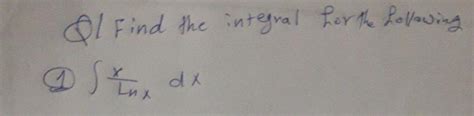 Q1 Find the integral for the following
① ∫ x/Lnx dx